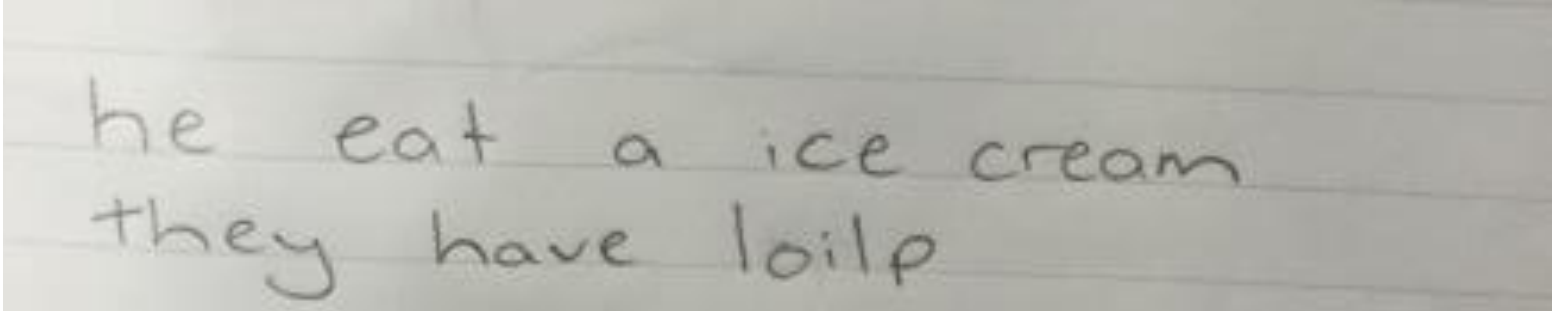 he eat a ice cream
they have loilp